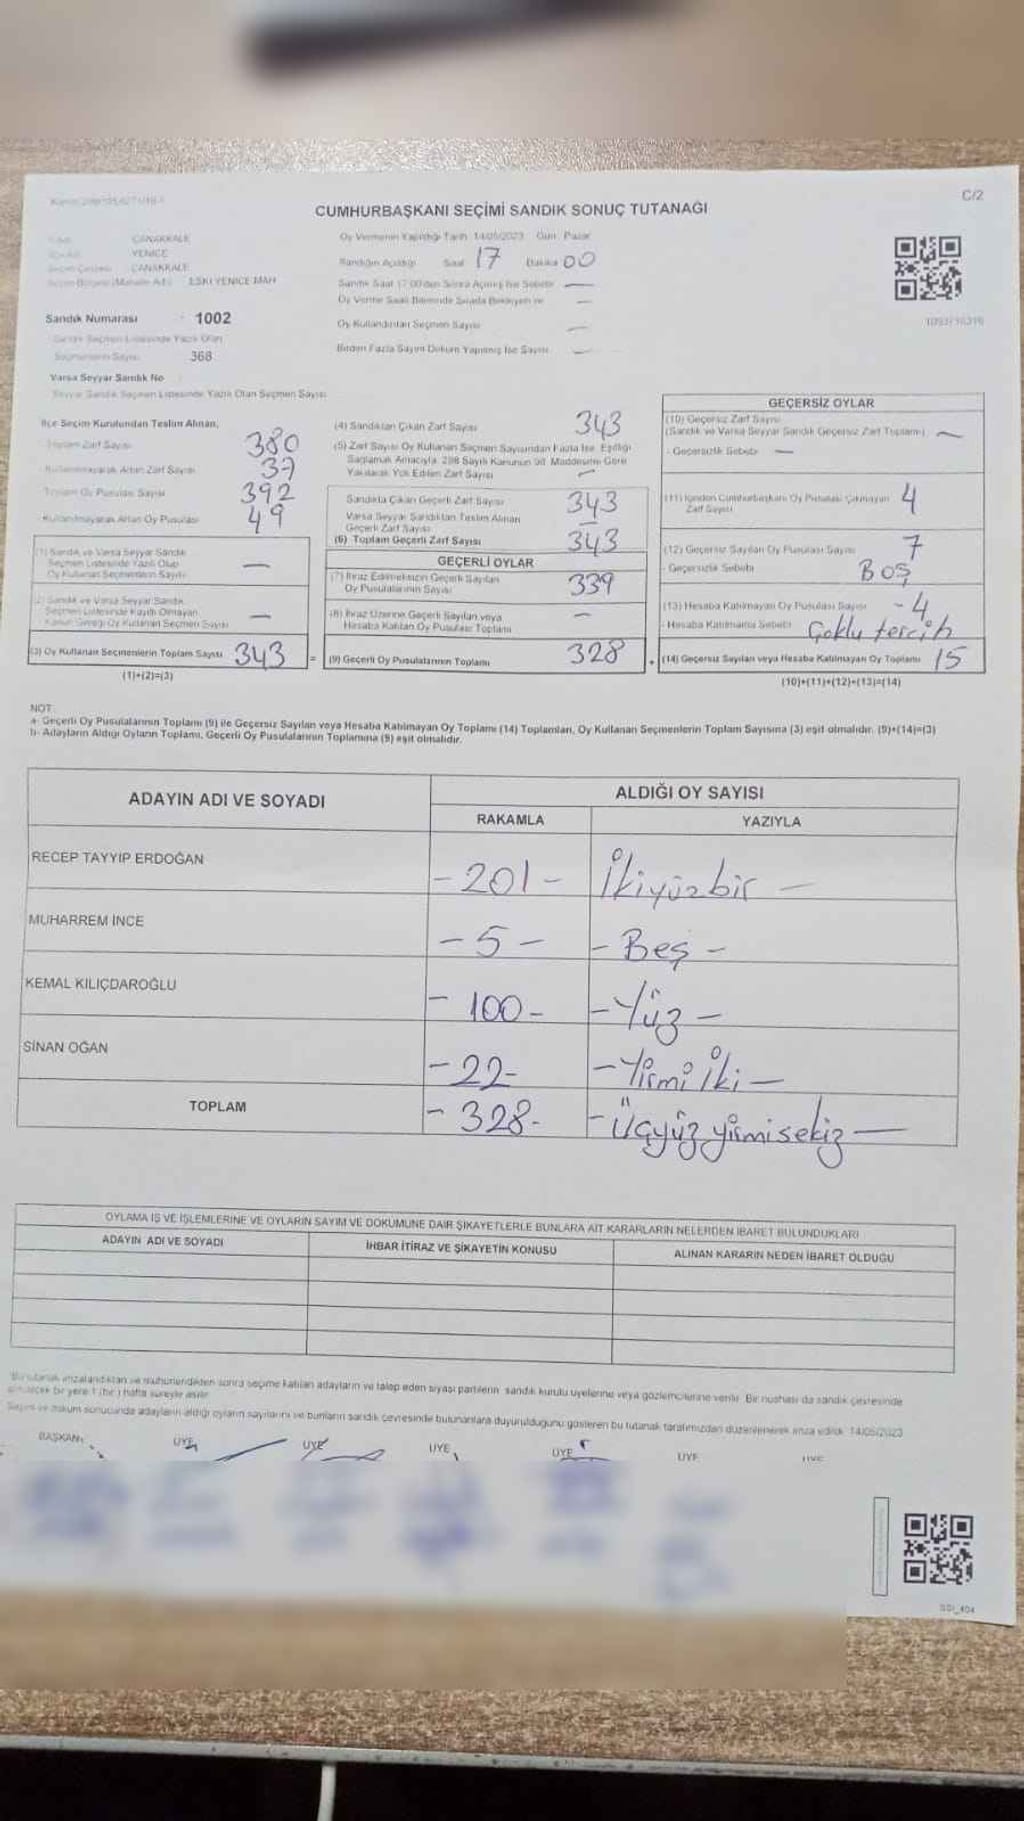 C/2
CUMHURBAŞKANI SEÇİMİ SANDIK SONUÇ TUTANAĞI
ÇANAKKALE
YENİCE
ÇANAKKALE
ESKİ YENİCE MAH
Sandık Numarası 1002
Sandık Seçmen Listesinde Yazılı Olan
Seçmenlerin Sayısı 368
Varsa Seyyar Sandık No
Seyyar Sandık Seçmen Listesinde Yazılı Olan Seçmen Sayısı
Oy Vermenin Yapıldığı Tarih 14/05/2023 Gün Pazar
Sandığın Açıldığı Saat 17 Dakika 00
Sandık Saat 17:00'den Sonra Açılmış İse Sebebi —
Oy Verme Saati Bitiminde Sırada Bekleyen ve —
Oy Kullandırılan Seçmen Sayısı —
Birden Fazla Sayım Döküm Yapılmış İse Sayısı —
İlçe Seçim Kurulundan Teslim Alınan;
Toplam Zarf Sayısı 380
Kullanılmayarak Artan Zarf Sayısı 37
Toplam Oy Pusulası Sayısı 392
Kullanılmayarak Artan Oy Pusulası 49
(1) Sandık ve Varsa Seyyar Sandık
Seçmen Listesinde Yazılı Olup
Oy Kullanan Seçmenlerin Sayısı —
(2) Sandık ve Varsa Seyyar Sandık
Seçmen Listesinde Kayıtlı Olmayan
Kanun Gereği Oy Kullanan Seçmen Sayısı —
(3) Oy Kullanan Seçmenlerin Toplam Sayısı 343 =
(1)+(2)=(3)
(4) Sandıktan Çıkan Zarf Sayısı 343
(5) Zarf Sayısı Oy Kullanan Seçmen Sayısından Fazla İse, Eşitliği
Sağlamak Amacıyla, 298 Sayılı Kanunun 98. Maddesine Göre
Yakılarak Yok Edilen Zarf Sayısı —
Sandıkta Çıkan Geçerli Zarf Sayısı 343
Varsa Seyyar Sandıktan Teslim Alınan
Geçerli Zarf Sayısı —
(6) Toplam Geçerli Zarf Sayısı 343
GEÇERLİ OYLAR
(7) İtiraz Edilmeksizin Geçerli Sayılan
Oy Pusulalarının Sayısı 339
(8) İtiraz Üzerine Geçerli Sayılan veya
Hesaba Katılan Oy Pusulası Toplamı —
(9) Geçerli Oy Pusulalarının Toplamı 328 +
GEÇERSİZ OYLAR
(10) Geçersiz Zarf Sayısı
(Sandık ve Varsa Seyyar Sandık Geçersiz Zarf Toplamı) —
- Geçersizlik Sebebi —
(11) İçinden Cumhurbaşkanı Oy Pusulası Çıkmayan
Zarf Sayısı 4
(12) Geçersiz Sayılan Oy Pusulası Sayısı 7
- Geçersizlik Sebebi BOŞ
(13) Hesaba Katılmayan Oy Pusulası Sayısı - 4
- Hesaba Katılmama Sebebi Çoklu tercih
(14) Geçersiz Sayılan veya Hesaba Katılmayan Oy Toplamı 15
(10)+(11)+(12)+(13)=(14)
NOT:
a- Geçerli Oy Pusulalarının Toplamı (9) ile Geçersiz Sayılan veya Hesaba Katılmayan Oy Toplamı (14) Toplamları, Oy Kullanan Seçmenlerin Toplam Sayısına (3) eşit olmalıdır. (9)+(14)=(3)
b- Adayların Aldığı Oyların Toplamı, Geçerli Oy Pusulalarının Toplamına (9) eşit olmalıdır.
ADAYIN ADI VE SOYADI
ALDIĞI OY SAYISI
RAKAMLA YAZIYLA
RECEP TAYYIP ERDOĞAN - 201 - İkiyüzbir —
MUHARREM İNCE - 5 - - Beş -
KEMAL KILIÇDAROĞLU - 100 - - Yüz -
SİNAN OĞAN - 22 - - Yirmi İki —
TOPLAM - 328 - - Üçyüz yirmisekiz —
OYLAMA İŞ VE İŞLEMLERİNE VE OYLARIN SAYIM VE DÖKÜMÜNE DAİR ŞİKAYETLERLE BUNLARA AİT KARARLARIN NELERDEN İBARET BULUNDUKLARI
ADAYIN ADI VE SOYADI İHBAR İTİRAZ VE ŞİKAYETİN KONUSU ALINAN KARARIN NEDEN İBARET OLDUĞU
Bu tutanak imzalandıktan ve mühürlendikten sonra seçime katılan adayların ve talep eden siyasi partilerin sandık kurulu üyelerine veya gözlemcilerine verilir. Bir nüshası da sandık çevresinde
bir yere 1 (bir) hafta süreyle asılır.
Sayım ve döküm sonucunda adayların aldığı oyların sayılarını ve bunların sandık çevresinde bulunanlara duyurulduğunu gösteren bu tutanak tarafımızdan düzenlenerek imza edildi. 14/05/2023
BAŞKAN ÜYE ÜYE ÜYE ÜYE ÜYE ÜYE